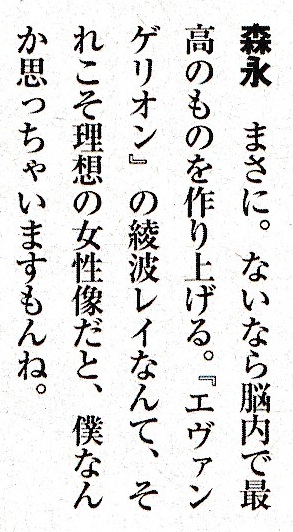 森永　まさに。ないなら脳内で最
高のものを作り上げる。『エヴァン
ゲリオン』の綾波レイなんて、そ
れこそ理想の女性像だと、僕なん
か思っちゃいますもんね。